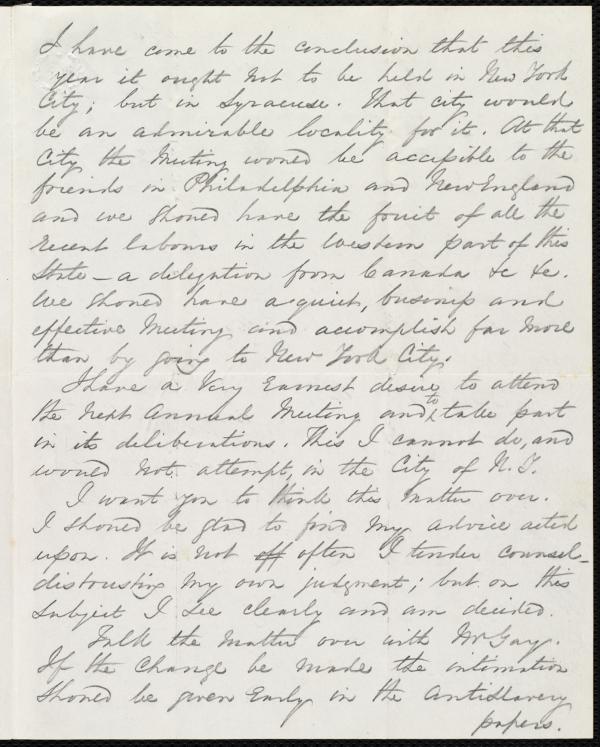 I have come to the conclusion that this
year it ought not to be held in New York
City; but in Syracuse. That city would
be an admirable locality for it. At that
City the Meeting would be accessible to the
friends in Philadelphia and New England
and we should have the fruit of all the
recent labours in the Western part of this
State – a delegation from Canada &c &c.
We should have a quiet, business and
effective Meeting and accomplish far more
than by going to New York City.
I have a very earnest desire to attend
the next Annual Meeting and to take part
in its deliberations. This I cannot do, and
would not attempt, in the City of N.Y.
I want you to think this matter over.
I should be glad to find my advice acted
upon. It is not off often I tender counsel –
distrusting my own judgment; but on this
subject I see clearly and am decided.
Talk the matter over with Mr Gay.
If the change be made the intimation
should be given early in the Antislavery
papers.